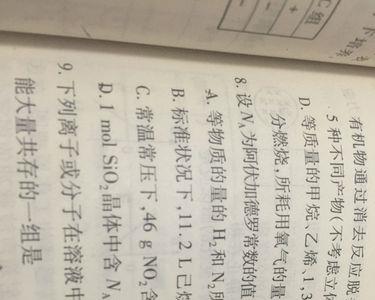 C组
+
有机物通过消去反应脱
5种不同产物(不考虑立体
D. 等质量的甲烷、乙烯、1,3
分燃烧,所耗用氧气的量
8. 设 Nₐ为阿伏加德罗常数的值
A. 等物质的量的 H₂和 N₂所
B. 标准状况下,11.2 L 己烷
C. 常温常压下,46 g NO₂含
D. 1 mol SiO₂晶体中含 Nₐ
9. 下列离子或分子在溶液中
能大量共存的一组是